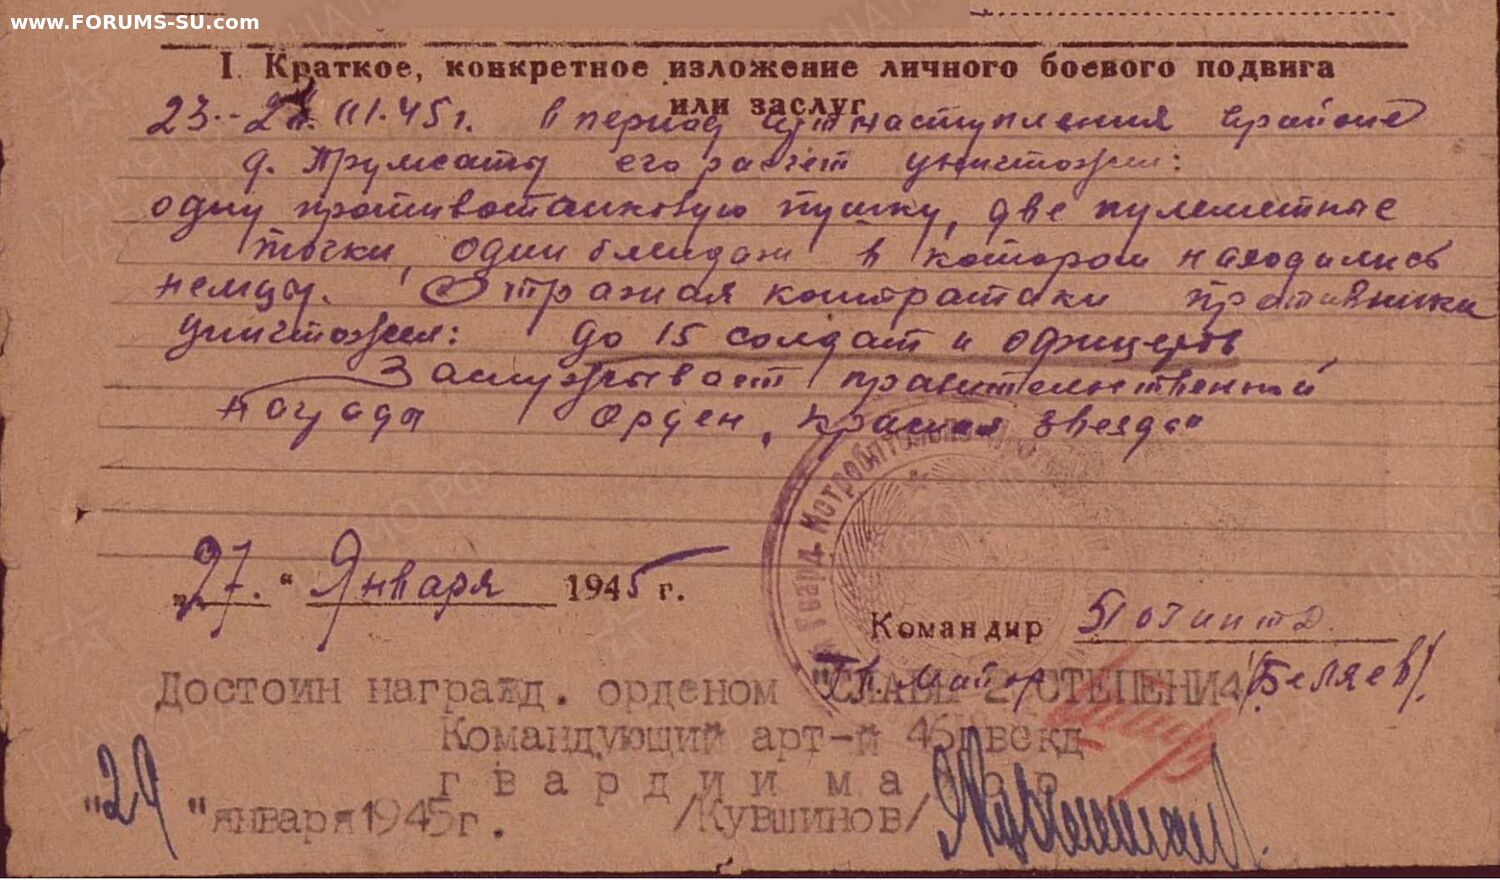 www.FORUMS-SU.com
I. Краткое, конкретное изложение личного боевого подвига
или заслуг
23.- в период наступления в районе
его расчет уничтожил:
одну противотанковую пушку, две пулеметные
точки, один блиндаж в котором находились
немцы. Отражая контратаки противника
уничтожил: до 15 солдат и офицеров
Заслуживает правительственной
награды Орден „Красная звезда"
„27." Января 1945 г.
Командир
Гв. майор /Беляев/.
Достоин награжд. орденом "СЛАВЫ 2 СТЕПЕНИ"
Командующий арт-й
гвардии майор
"29" января 1945г. /Кувшинов/